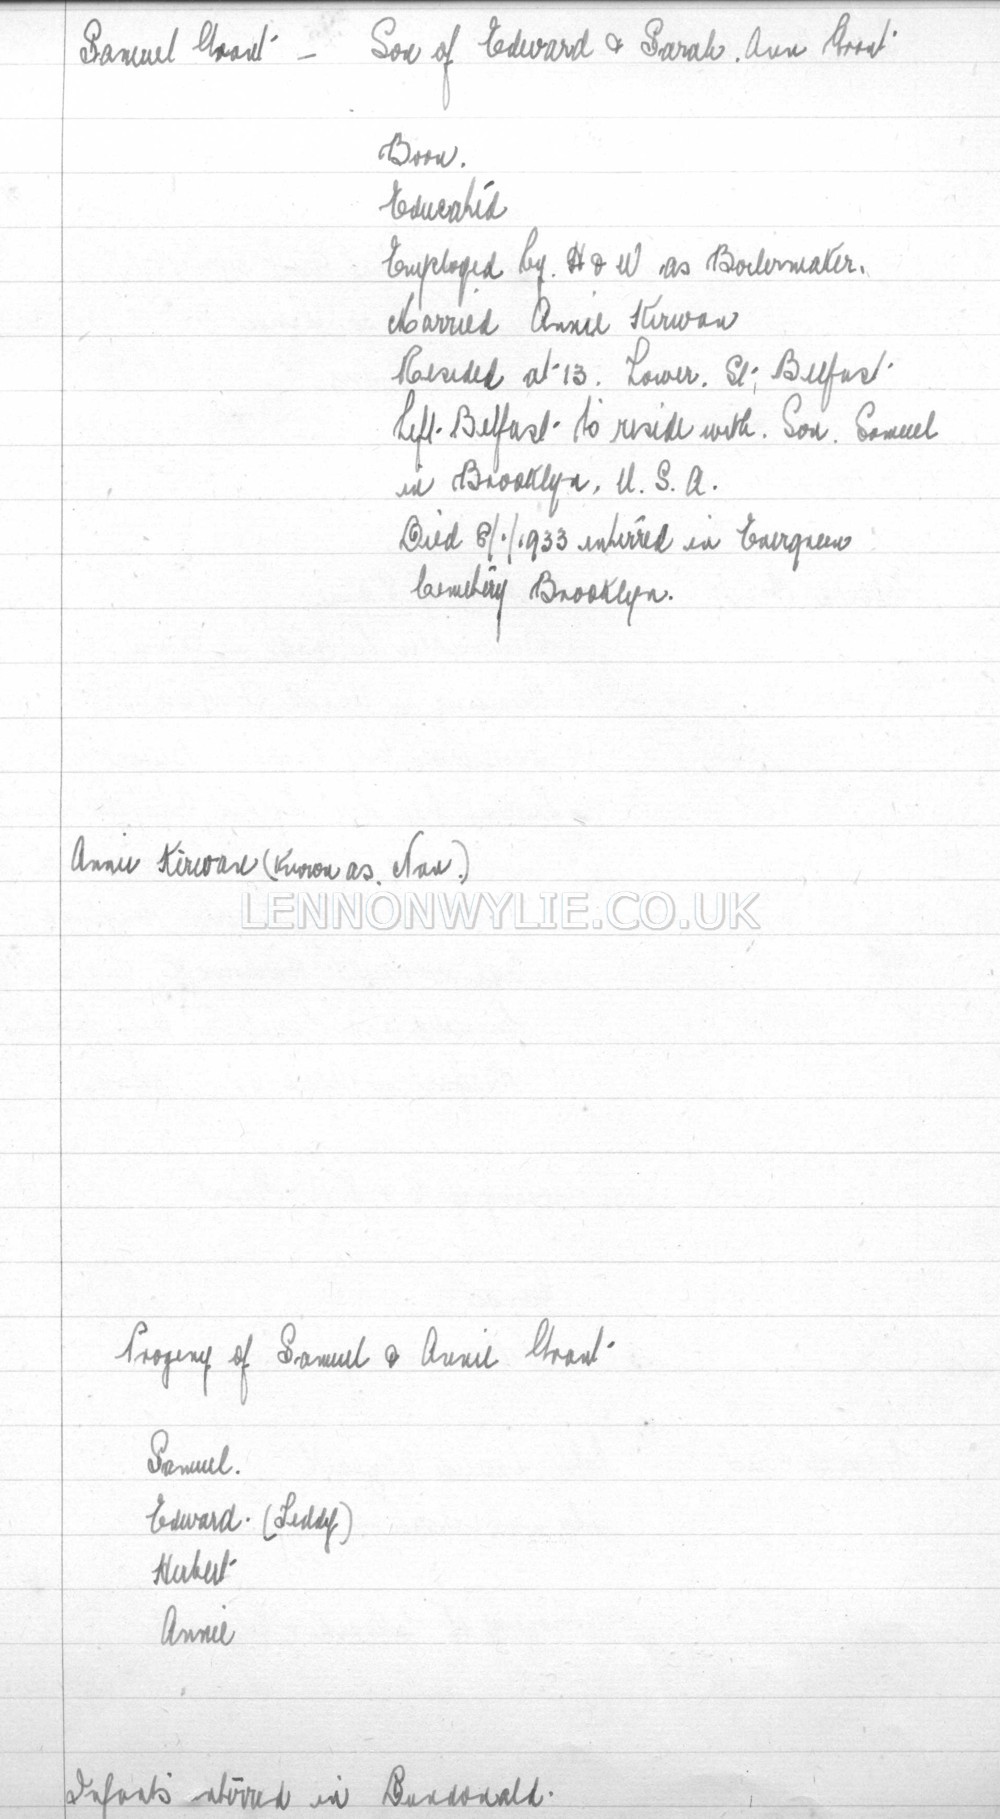 Samuel Grant - Son of Edward & Sarah. Ann Grant
Born.
Educated
Employed by. H & W as Boilermaker.
Married Annie Kirwan
Resided at 13. Lower. St; Belfast
Left Belfast to reside with. Son. Samuel
in Brooklyn, U. S. A.
Died 8/1/1933 interred in Evergreen
Cemetery Brooklyn.
Annie Kirwan (Known as. Nan.)
LENNONWYLIE.CO.UK
Progeny of Samuel & Annie Grant
Samuel.
Edward. (Teddy)
Herbert
Annie
Infants interred in Dundonald.